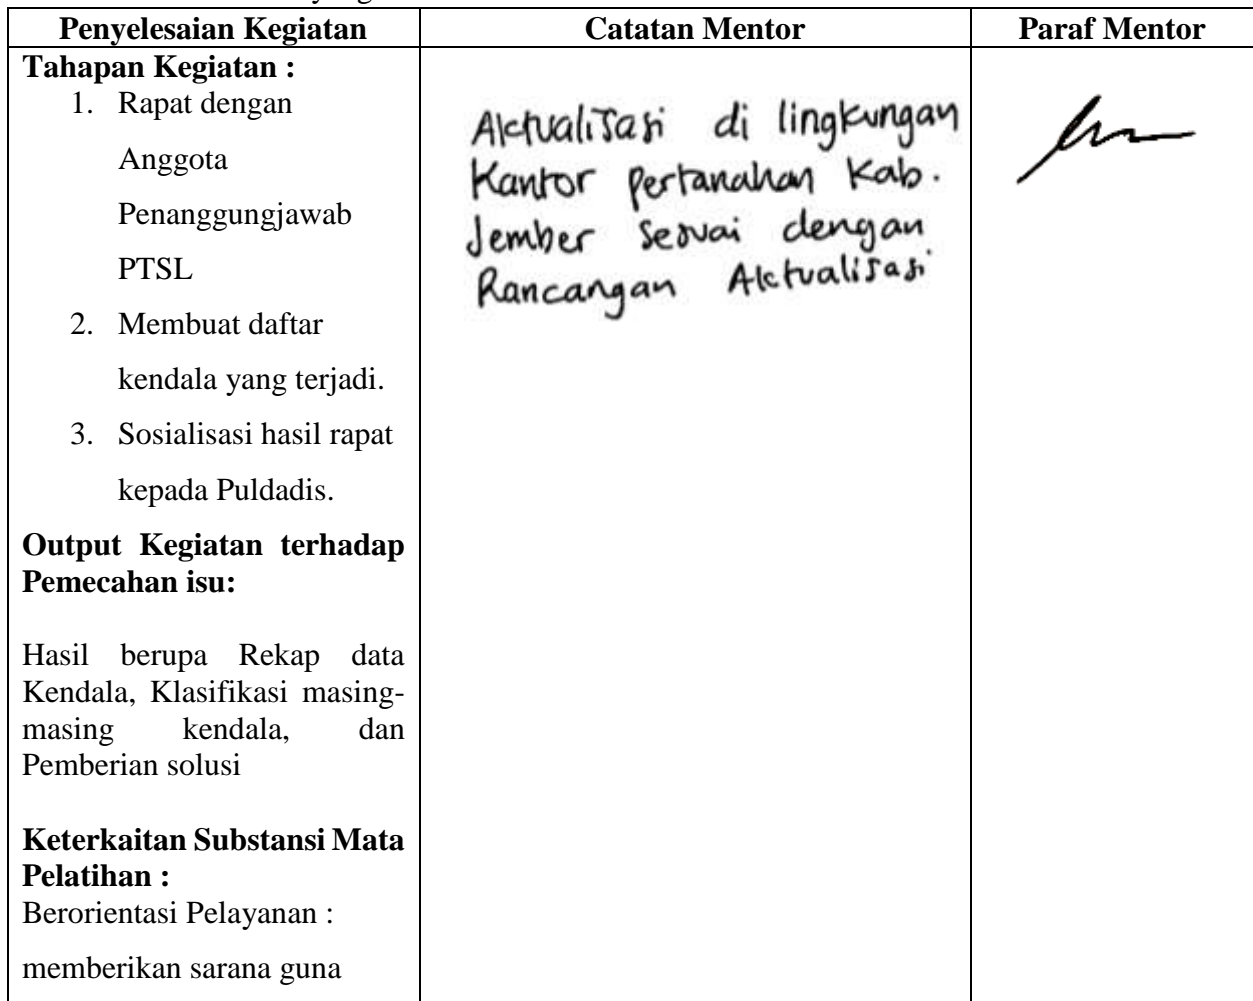 Penyelesaian Kegiatan
Catatan Mentor
Paraf Mentor
Tahapan Kegiatan :
1. Rapat dengan
Anggota
Penanggungjawab
PTSL
2. Membuat daftar
kendala yang terjadi.
3. Sosialisasi hasil rapat
kepada Puldadis.
Output Kegiatan terhadap
Pemecahan isu:
Hasil berupa Rekap data
Kendala, Klasifikasi masing-
masing kendala, dan
Pemberian solusi
Keterkaitan Substansi Mata
Pelatihan :
Berorientasi Pelayanan :
memberikan sarana guna
Aktualisasi di lingkungan
Kantor pertanahan Kab.
Jember sesuai dengan
Rancangan Aktualisasi